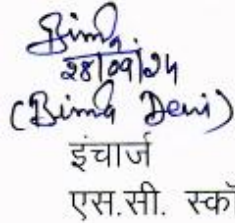 Bimla
28/09/24
(Bimla Devi)
इंचार्ज
एस.सी. स्कॉ